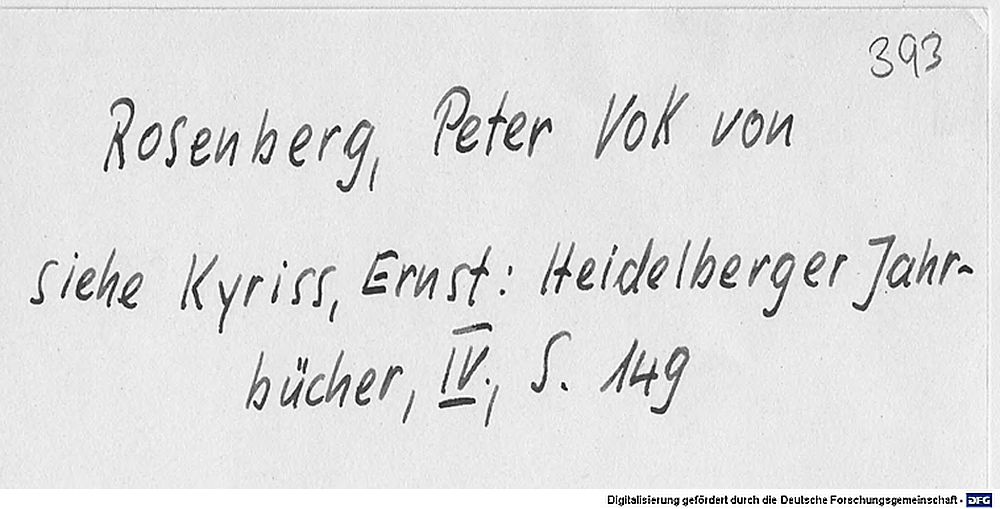 393
Rosenberg, Peter Vok von
siehe Kyriss, Ernst: Heidelberger Jahr-
bücher, IV., S. 149
Digitalisierung gefördert durch die Deutsche Forschungsgemeinschaft - DFG